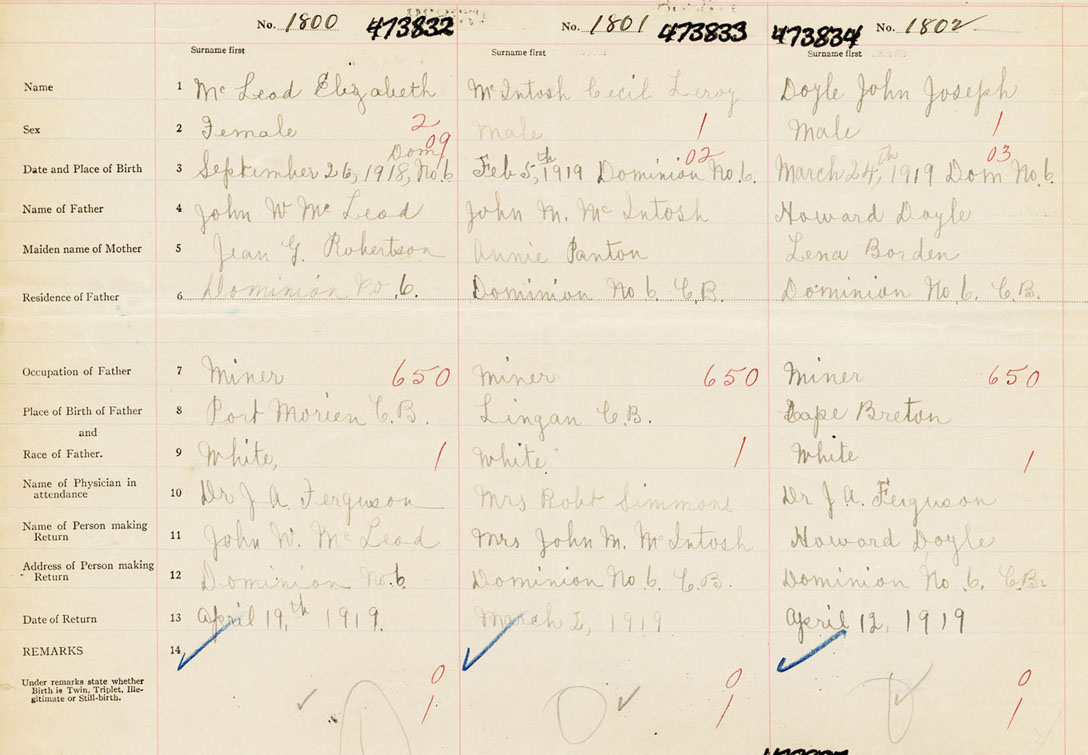 No. 1800 473832 No. 1801 473833 473834 No. 1802
Surname first Surname first Surname first
Name 1 Mc Leod Elizabeth McIntosh Cecil Leroy Doyle John Joseph
Sex 2 Female 2 Male 1 Male 1
09 02 03
Date and Place of Birth 3 September 26, 1918, Dom No. 6 Feb 5,th 1919 Dominion No. 6. March 24,th 1919 Dom No. 6.
Name of Father 4 John W Mc Leod John M. Mc Intosh Howard Doyle
Maiden name of Mother 5 Jean G. Robertson Annie Panton Lena Borden
Residence of Father 6 Dominion No. 6. Dominion No 6. C.B. Dominion No. 6. C.B.
Occupation of Father 7 Miner 650 Miner 650 Miner 650
Place of Birth of Father 8 Port Morien C.B. Lingan C.B. Cape Breton
and
Race of Father. 9 White, 1 White 1 White 1
Name of Physician in
attendance 10 Dr J. A. Ferguson Mrs Robt Simmons Dr J. A. Ferguson
Name of Person making
Return 11 John W. McLeod Mrs John M. McIntosh Howard Doyle
Address of Person making
Return 12 Dominion No. 6 Dominion No 6. C.B. Dominion No. 6. C.B.
Date of Return 13 April 19,th 1919. March 2, 1919. April 12, 1919
REMARKS 14
Under remarks state whether
Birth is Twin, Triplet, Ille-
gitimate or Still-birth.
0 0 0
1 1 1